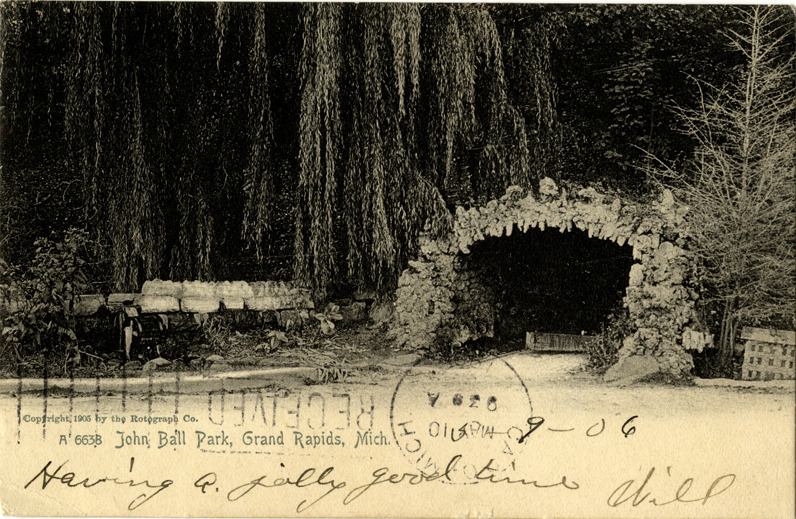 Copyright, 1905 by the Rotograph Co.
RECEIVED
A 6638 John Ball Park, Grand Rapids, Mich.
MAY 10
MICH
9 - 06
Having a jolly good time Will